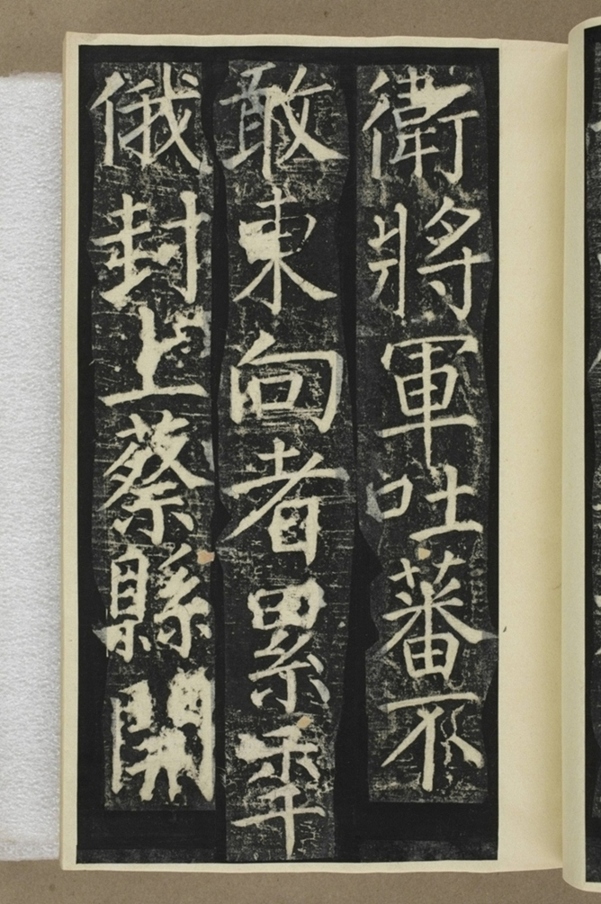 衛將軍吐蕃不
敢東向者累年
俄封上蔡縣開